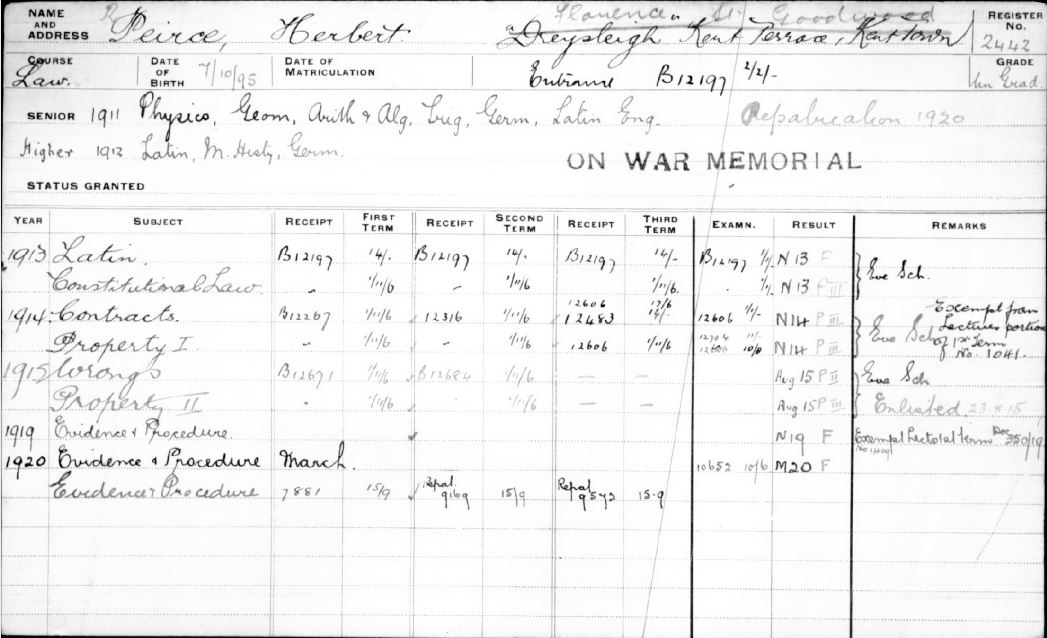 NAME AND ADDRESS Peirce, Herbert Florence St Goodwood REGISTER No. 2442
Dreysleigh Kent Terrace, Kent Town
COURSE Law. DATE OF BIRTH 7/10/95 DATE OF MATRICULATION Entrance B12197 2/2/- GRADE Un Grad.
SENIOR 1911 Physics, Geom, Arith & Alg, Trig, Germ, Latin Eng. Repatriation 1920
Higher 1912 Latin, M. Histy, Germ.
ON WAR MEMORIAL
STATUS GRANTED
YEAR SUBJECT RECEIPT FIRST TERM RECEIPT SECOND TERM RECEIPT THIRD TERM EXAMN. RESULT REMARKS
1913 Latin. B12197 14/- B12197 14/- B12197 14/- B12197 1/1/- N13 F } Eve Sch.
Constitutional Law. " 1/11/6 " 1/11/6 1/11/6 1/1/- N13 P III
1914 Contracts. B12267 1/11/6 12316 1/11/6 12606 12483 17/6 14/- 12606 1/1/- N14 P III } Eve Sch Exempt from Lectures portion of 1st Term No. 1041.
Property I " 1/11/6 " 1/11/6 12606 1/11/6 12606 10/6 N14 P III
1915 Wrongs B12671 1/11/6 B12684 1/11/6 — — Aug 15 P II } Eve Sch
Property II " 1/11/6 " 1/11/6 — — Aug 15 P III Enlisted 23-8-15
1919 Evidence & Procedure. N19 F Exempt Lect 3rd Term Doc 350/19
1920 Evidence & Procedure March. 10652 10/6 M20 F
Evidence & Procedure 7881 15/9 Repat. 9169 15/9 Repat 9572 15-9